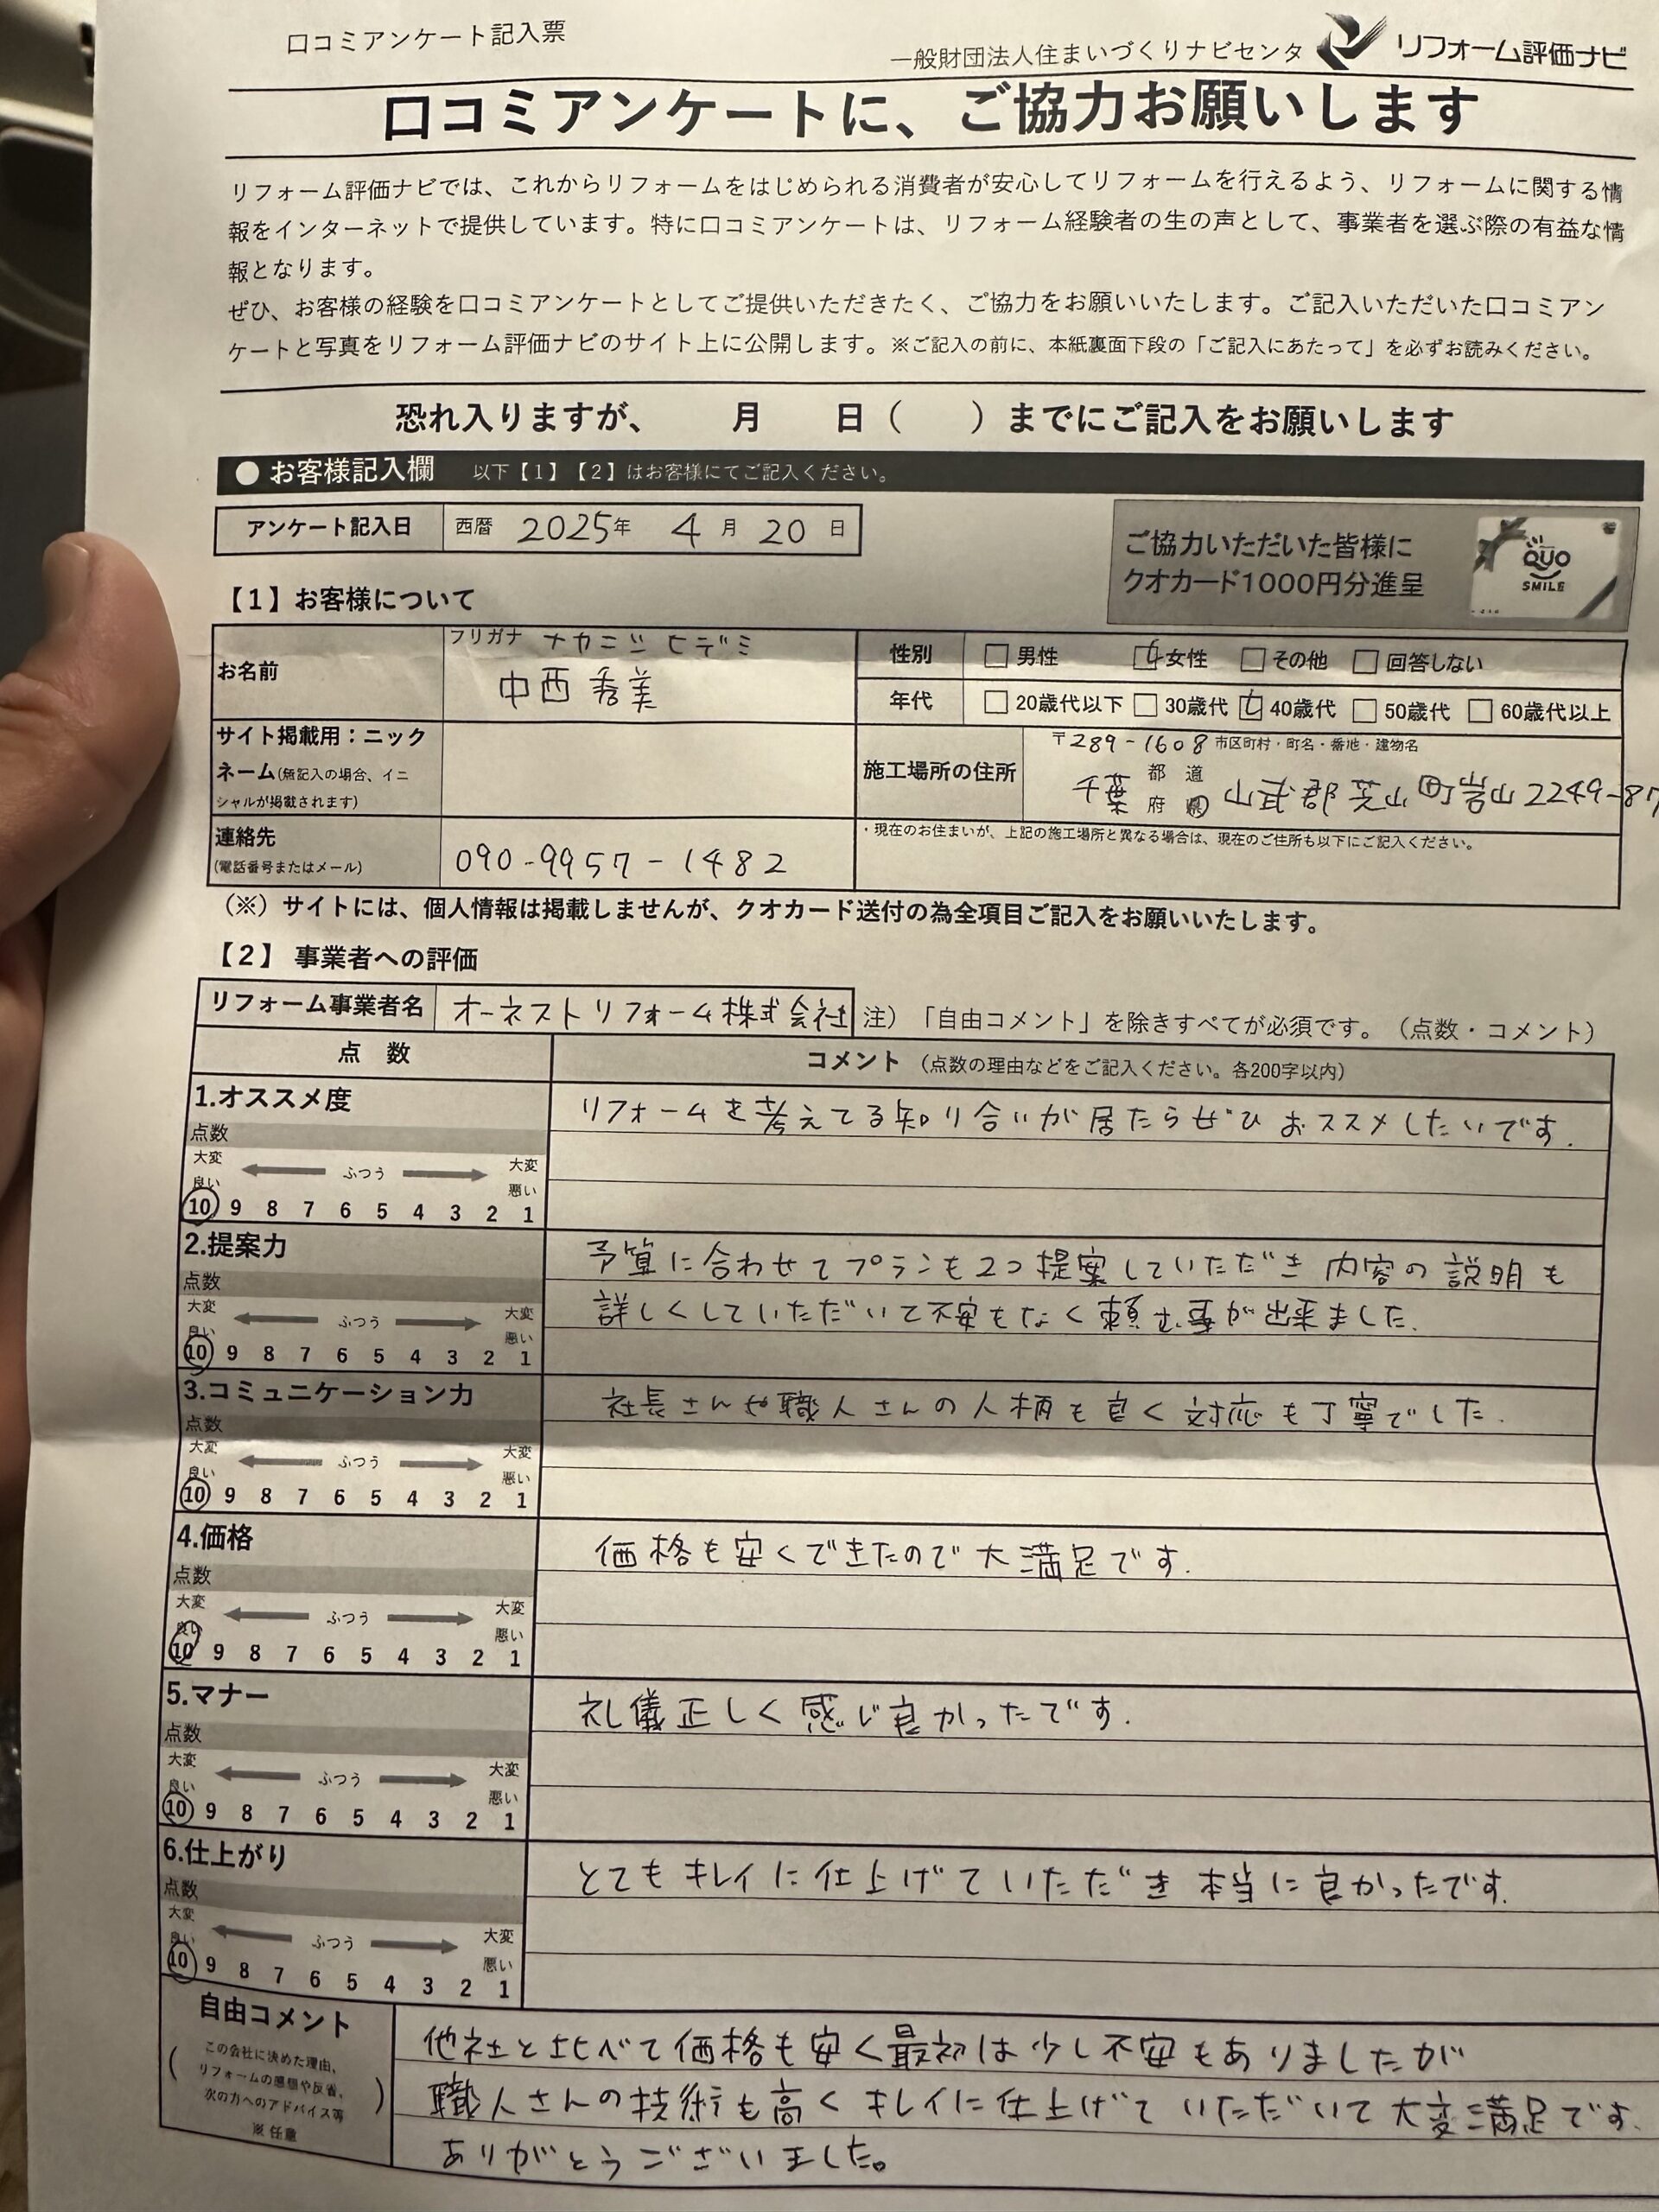 口コミアンケート記入票
一般財団法人住まいづくりナビセンタ リフォーム評価ナビ
口コミアンケートに、ご協力お願いします
リフォーム評価ナビでは、これからリフォームをはじめられる消費者が安心してリフォームを行えるよう、リフォームに関する情
報をインターネットで提供しています。特に口コミアンケートは、リフォーム経験者の生の声として、事業者を選ぶ際の有益な情
報となります。
ぜひ、お客様の経験を口コミアンケートとしてご提供いただきたく、ご協力をお願いいたします。ご記入いただいた口コミアン
ケートと写真をリフォーム評価ナビのサイト上に公開します。※ご記入の前に、本紙裏面下段の「ご記入にあたって」を必ずお読みください。
恐れ入りますが、 月 日( )までにご記入をお願いします
●お客様記入欄 以下【1】【2】はお客様にてご記入ください。
アンケート記入日 西暦 2025年 4月 20日
ご協力いただいた皆様に
クオカード1000円分進呈
QUO
SMILE
【1】お客様について
フリガナ ナカニシ ヒデミ
お名前 中西 秀美
性別 □男性 ☑女性 □その他 □回答しない
年代 □20歳代以下 □30歳代 ☑40歳代 □50歳代 □60歳代以上
サイト掲載用：ニック
ネーム(無記入の場合、イニ
シャルが掲載されます)
施工場所の住所
〒289-1608 市区町村・町名・番地・建物名
千葉 都 道 府 県 山武郡芝山町岩山2249-87
連絡先
(電話番号またはメール)
090-9957-1482
・現在のお住まいが、上記の施工場所と異なる場合は、現在のご住所も以下にご記入ください。
(※)サイトには、個人情報は掲載しませんが、クオカード送付の為全項目ご記入をお願いいたします。
【2】 事業者への評価
リフォーム事業者名 オーネストリフォーム株式会社 注)「自由コメント」を除きすべてが必須です。(点数・コメント)
点 数
コメント (点数の理由などをご記入ください。各200字以内)
1.オススメ度
点数
大変良い ふつう 大変悪い
10 9 8 7 6 5 4 3 2 1
リフォームを考えてる知り合いが居たらぜひおススメしたいです.
2.提案力
点数
大変良い ふつう 大変悪い
10 9 8 7 6 5 4 3 2 1
予算に合わせてプランも2つ提案していただき 内容の説明も
詳しくしていただいて不安もなく頼む事が出来ました.
3.コミュニケーション力
点数
大変良い ふつう 大変悪い
10 9 8 7 6 5 4 3 2 1
社長さんや職人さんの人柄も良く対応も丁寧でした.
4.価格
点数
大変良い ふつう 大変悪い
10 9 8 7 6 5 4 3 2 1
価格も安くできたので大満足です.
5.マナー
点数
大変良い ふつう 大変悪い
10 9 8 7 6 5 4 3 2 1
礼儀正しく感じ良かったです.
6.仕上がり
点数
大変良い ふつう 大変悪い
10 9 8 7 6 5 4 3 2 1
とてもキレイに仕上げていただき本当に良かったです.
自由コメント
(この会社に決めた理由、
リフォームの感想や反省、
次の方へのアドバイス等)
※任意
他社と比べて価格も安く最初は少し不安もありましたが
職人さんの技術も高くキレイに仕上げていただいて大変満足です.
ありがとうございました。